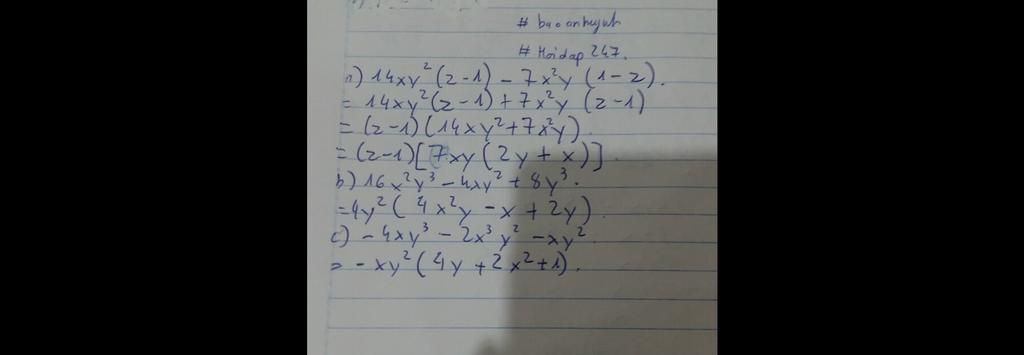 # baoanhuynh
# Hoidap247.
a) 14xy²(z-1) - 7x²y (1-z).
= 14xy²(z-1) + 7x²y (z-1)
= (z-1)(14xy²+7x²y)
= (z-1)[7xy(2y+x)].
b) 16x²y³ - 4xy² + 8y³.
=4y²( 4x²y - x + 2y)
c) - 4xy³ - 2x³y² - xy²
= - xy²(4y + 2x²+1).